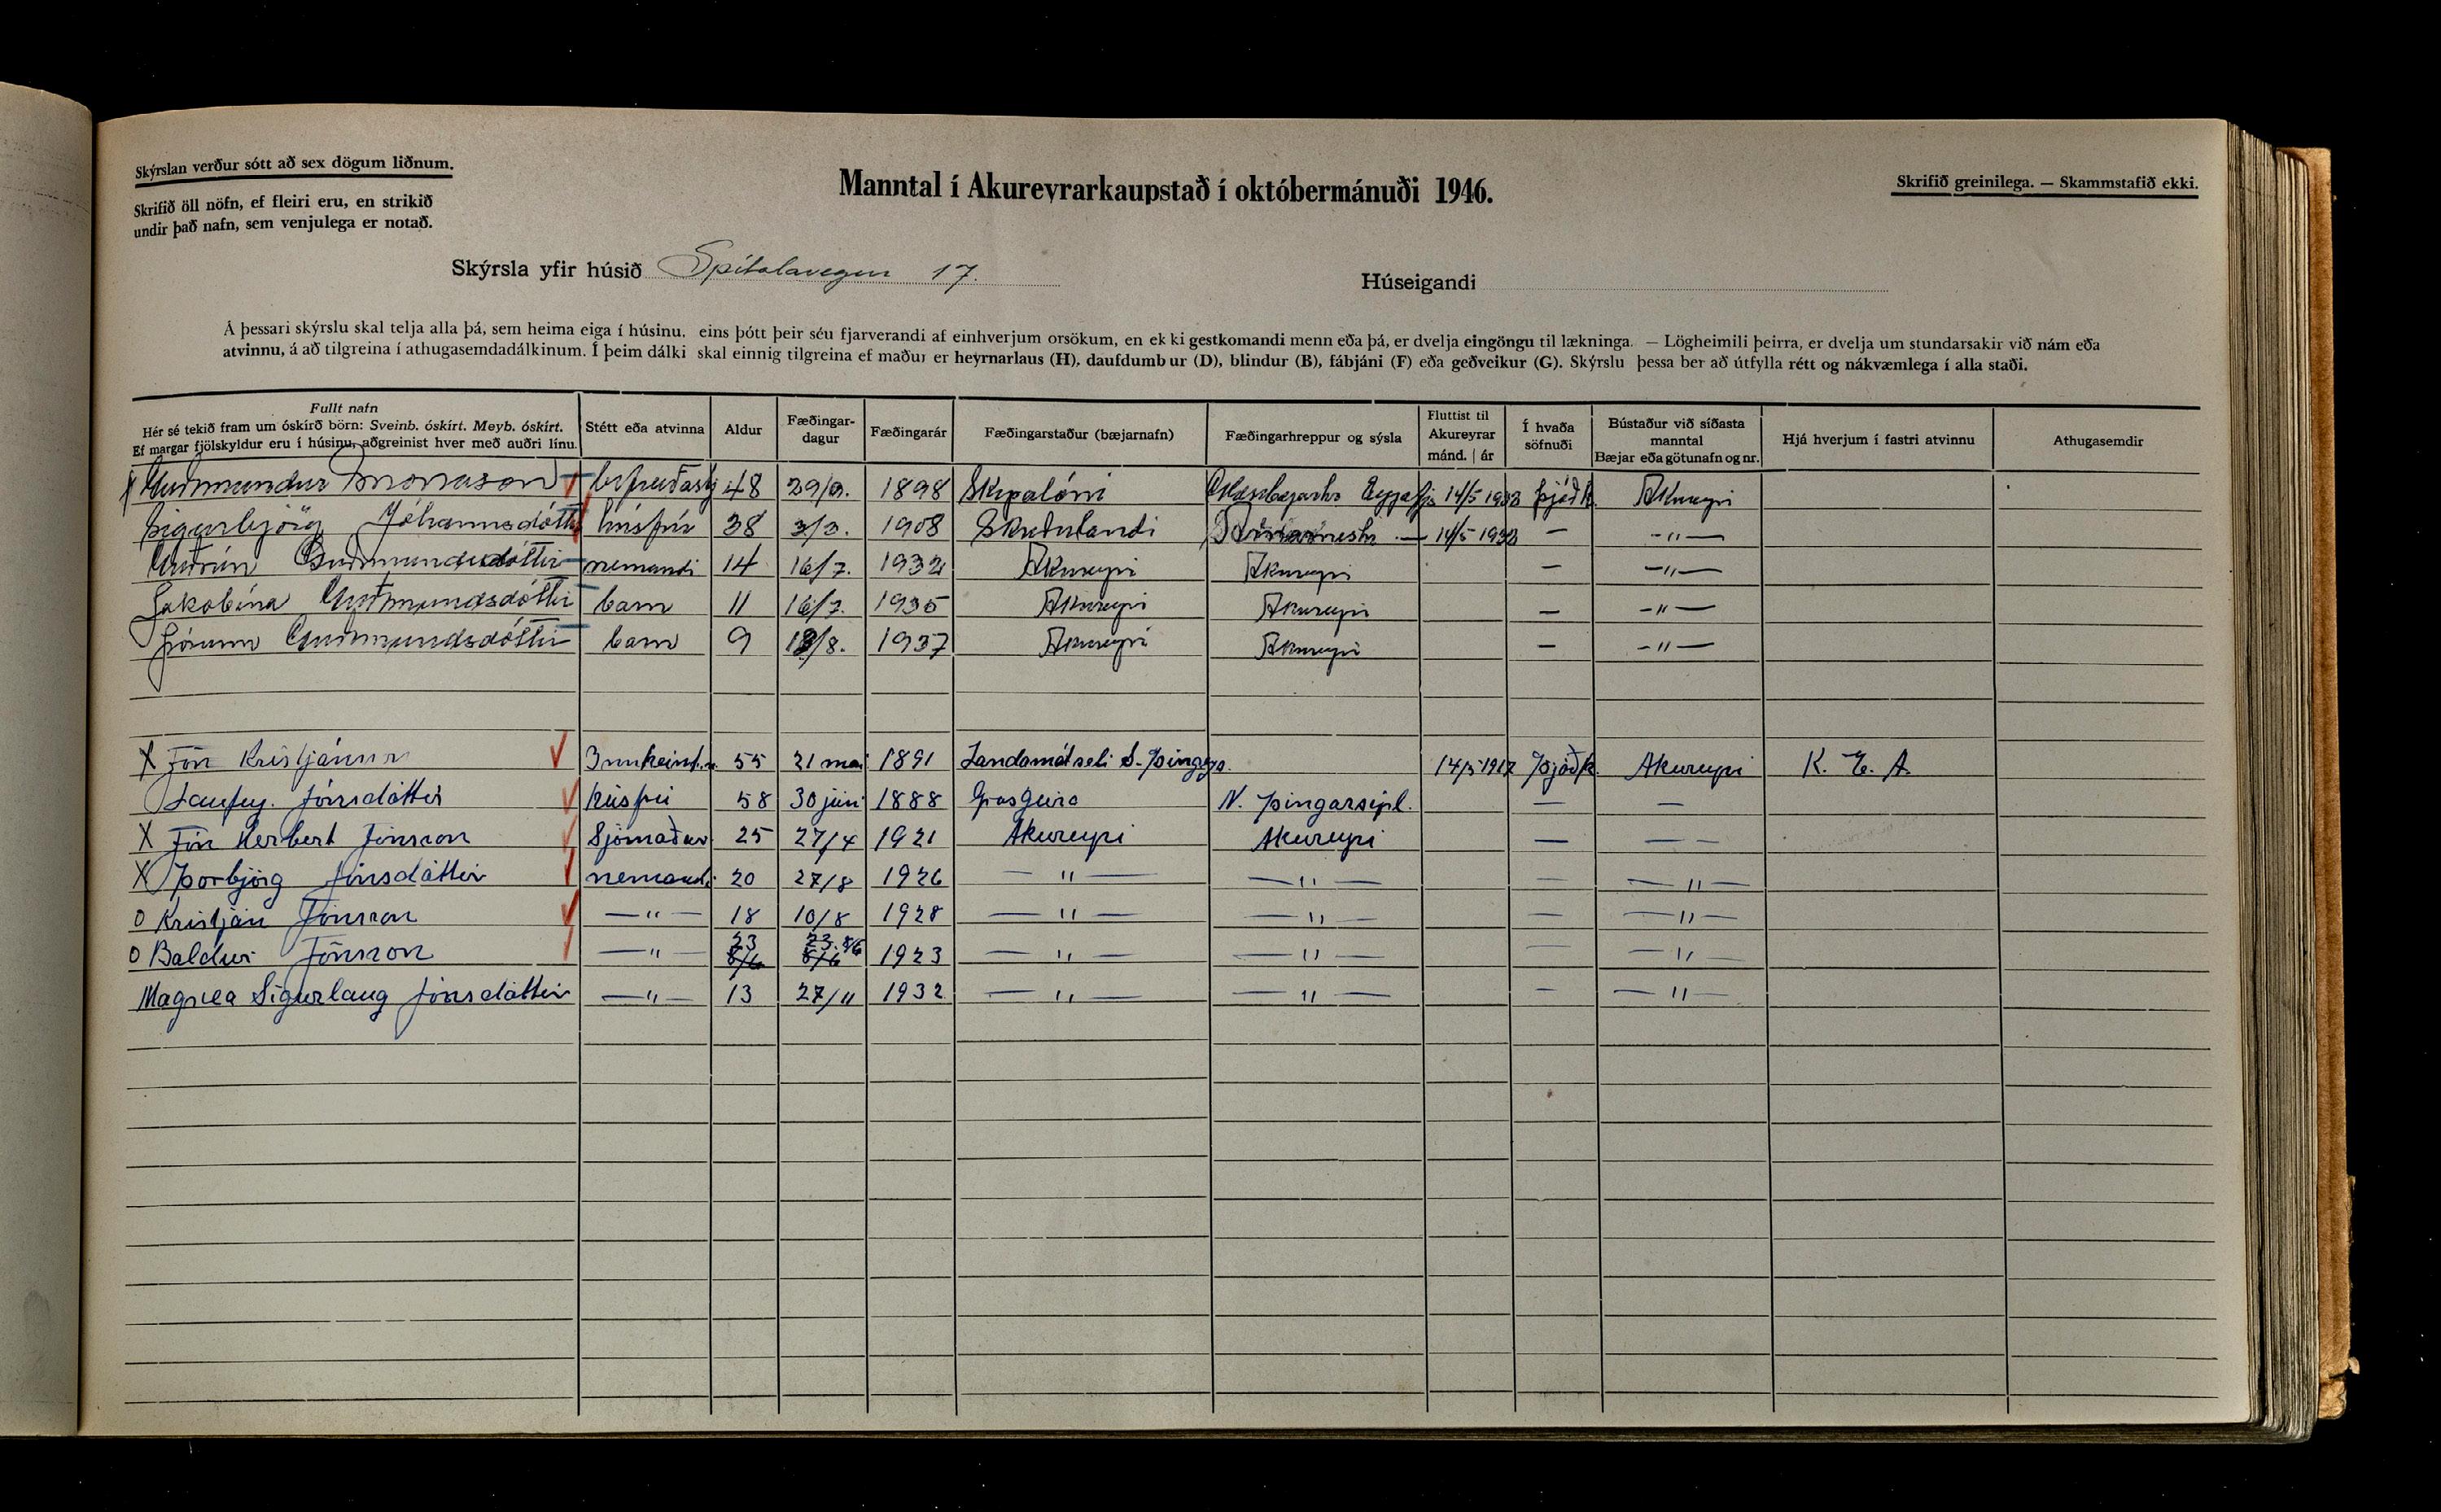 Skýrslan verður sótt að sex dögum liðnum.
Skrifið öll nöfn, ef fleiri eru, en strikið
undir það nafn, sem venjulega er notað.
Manntal í Akureyrarkaupstað í októbermánuði 1946.
Skrifið greinilega. — Skammstafið ekki.
Skýrsla yfir húsið Spítalavegur 17.
Húseigandi
Á þessari skýrslu skal telja alla þá, sem heima eiga í húsinu, eins þótt þeir séu fjarverandi af einhverjum orsökum, en ekki gestkomandi menn eða þá, er dvelja eingöngu til lækninga. — Lögheimili þeirra, er dvelja um stundarsakir við nám eða
atvinnu, á að tilgreina í athugasemdadálkinum. Í þeim dálki skal einnig tilgreina ef maður er heyrnarlaus (H), daufdumbur (D), blindur (B), fábjáni (F) eða geðveikur (G). Skýrslu þessa ber að útfylla rétt og nákvæmlega í alla staði.
Fullt nafn
Hér sé tekið fram um óskírð börn: Sveinb. óskírt. Meyb. óskírt.
Ef margar fjölskyldur eru í húsinu, aðgreinist hver með auðri línu.
Stétt eða atvinna
Aldur
Fæðingar-
dagur
Fæðingarár
Fæðingarstaður (bæjarnafn)
Fæðingarhreppur og sýsla
Fluttist til
Akureyrar
mánd. | ár
Í hvaða
söfnuði
Bústaður við síðasta
manntal
Bæjar eða götunafn og nr.
Hjá hverjum í fastri atvinnu
Athugasemdir
X Guðmundur Snorrason 48 29/9. 1898 Skipalóni 14/5 1933 þjóðk. Akureyri
Sigurbjörg Jóhannsdóttir húsfrú 38 3/3. 1908 Skuðulandi 14/5 1933 — -"-
Guðrún Guðmundsdóttir nemandi 14 16/7. 1932 Akureyri Akureyri — -"-
Jakobína Guðmundsdóttir barn 11 16/7. 1935 Akureyri Akureyri — -"-
Þórunn Guðmundsdóttir barn 9 18/8. 1937 Akureyri Akureyri — -"-
X Jón Kristjánsson Innheimt.m. 55 21 maí 1891 Landamótseli S-Þing.s. 14/5 1917 Þjóðk. Akureyri K. E. A.
Laufey Jónsdóttir húsfrú 58 30 júní 1888 Grasgeira N. Þingarsýsl. — —
X Jón Herbert Jónsson Sjómaður 25 27/4 1921 Akureyri Akureyri — — -
X Þorbjörg Jónsdóttir nemandi 20 27/8 1926 — " — — " — — — " —
o Kristján Jónsson — " — 18 10/8 1928 — " — — " — — — " —
o Baldur Jónsson — " 23 8/6 23. 8/6 1923 — " — — " — — — " —
Magnea Sigurlaug Jónsdóttir — " — 13 27/11 1932 — " — — " — — — " —